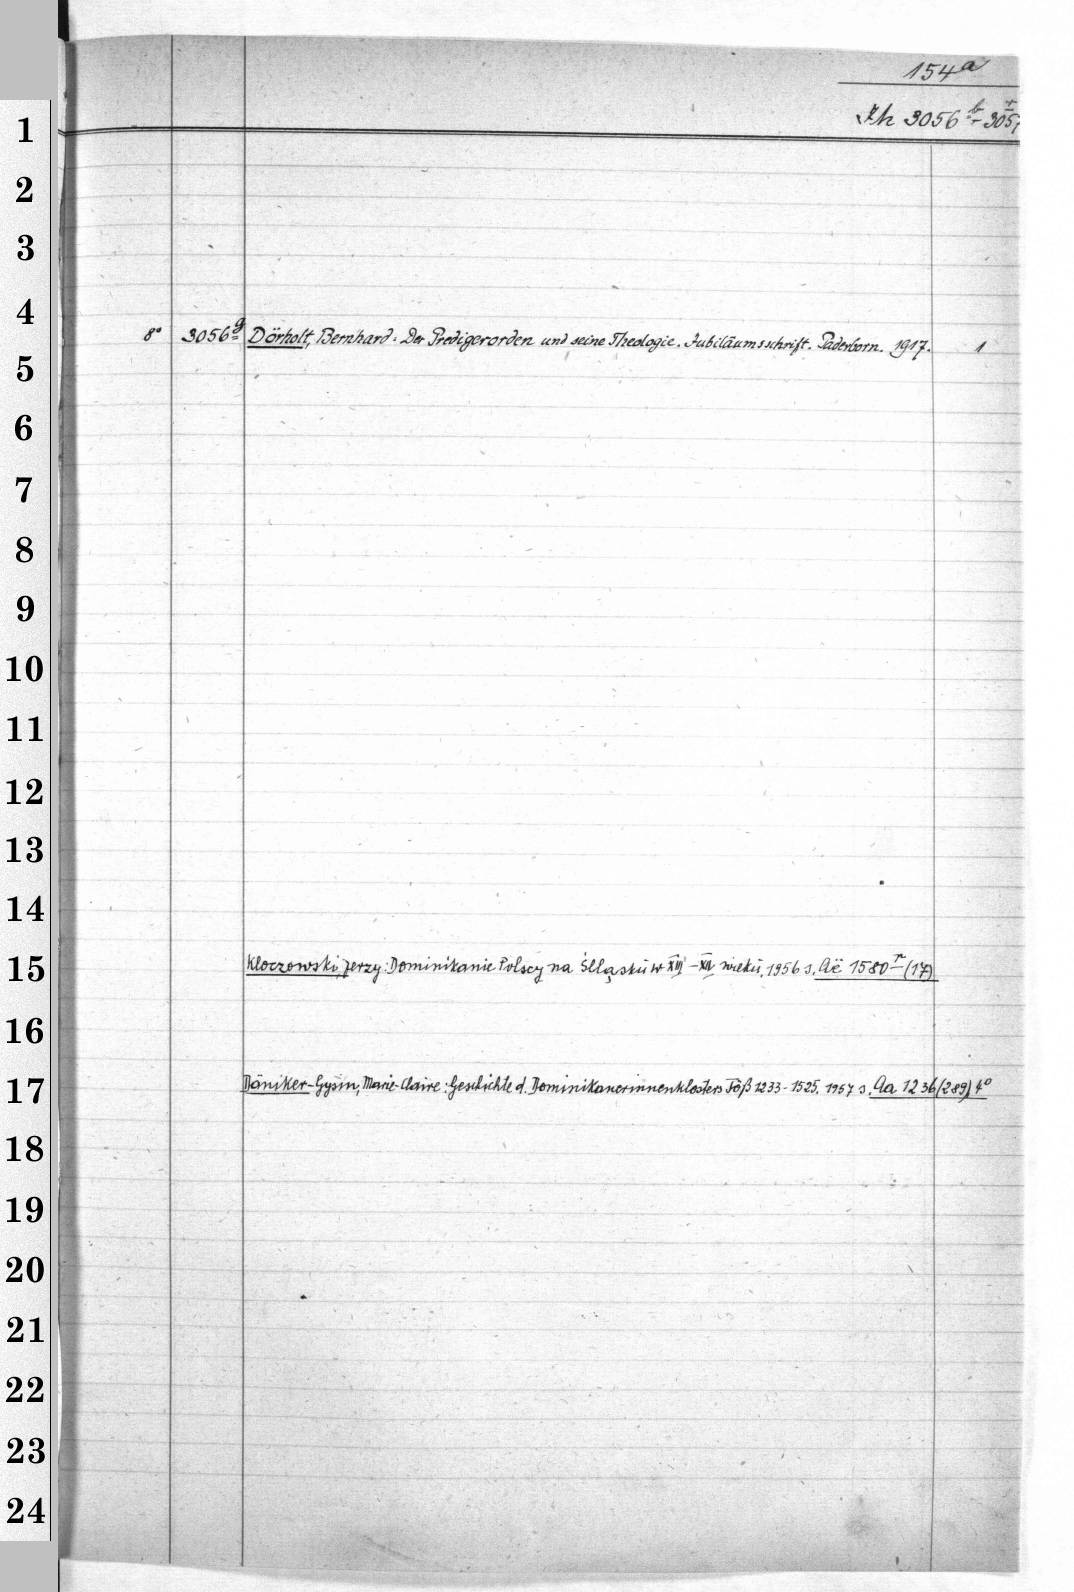 154a
Ih 3056 b - 3057
1
2
3
4
8° 3056 g Dörholt, Bernhard. Der Predigerorden und seine Theologie. Jubiläumsschrift. Paderborn. 1917. 1
5
6
7
8
9
10
11
12
13
14
15 Kłoczowski, Jerzy: Dominikanie Polscy na Śląsku w XIII - XIV wieku. 1956 s. Aë 1580 r (17)
16
17 Däniker-Gysin, Marie-Claire: Geschichte d. Dominikanerinnenklosters Töß 1233-1525. 1957 s. Aa 1236 (289) 4°
18
19
20
21
22
23
24